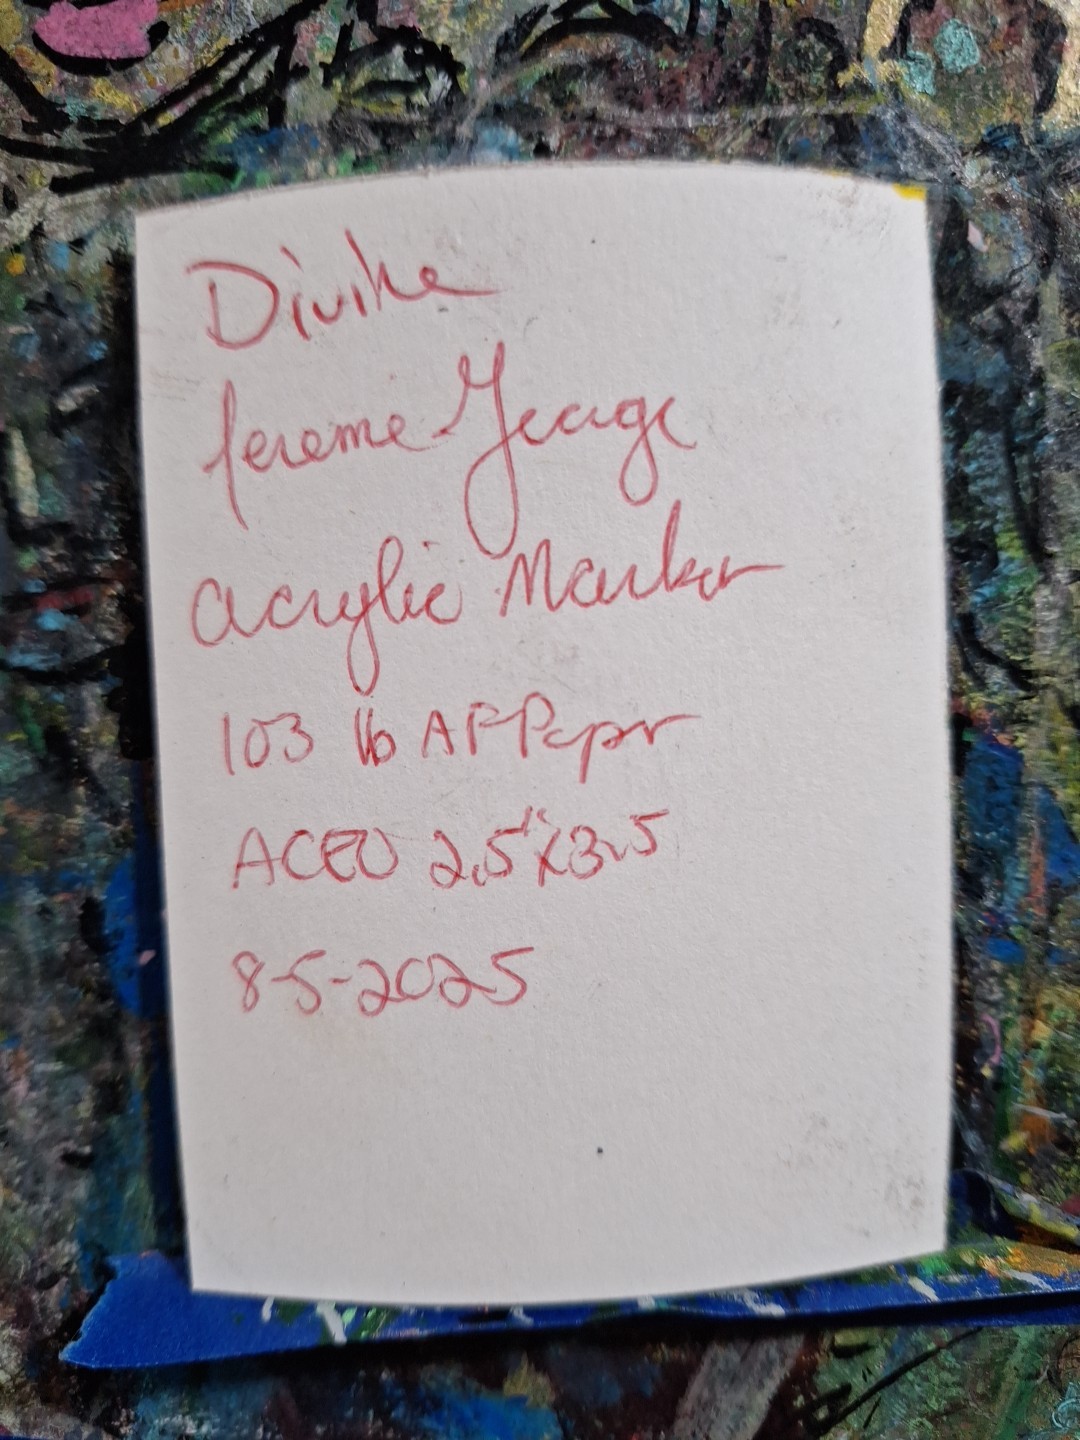 Divine
Jereme George
Acrylic Marker
103 lb AP Paper
ACEO 2.5"x3.5
8-5-2025